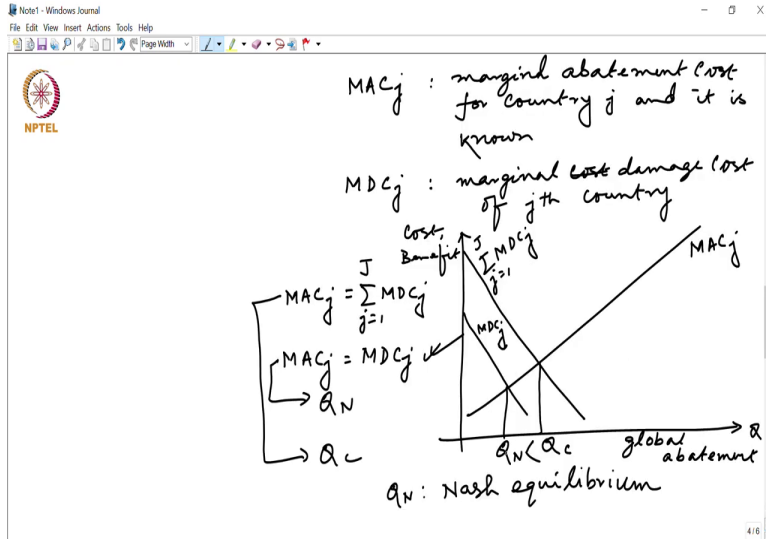 Note1 - Windows Journal
File Edit View Insert Actions Tools Help
Page Width
NPTEL
MACj : marginal abatement cost
for country j and it is
known
MDCj : marginal cost damage cost
of jth country
Cost,
Benefit
J
Σ MDCj
j=1
MACj
J
MACj = Σ MDCj
j=1
MDCj
MACj = MDCj
QN
QC
QN < QC
Q
global
abatement
QN : Nash equilibrium
4/6